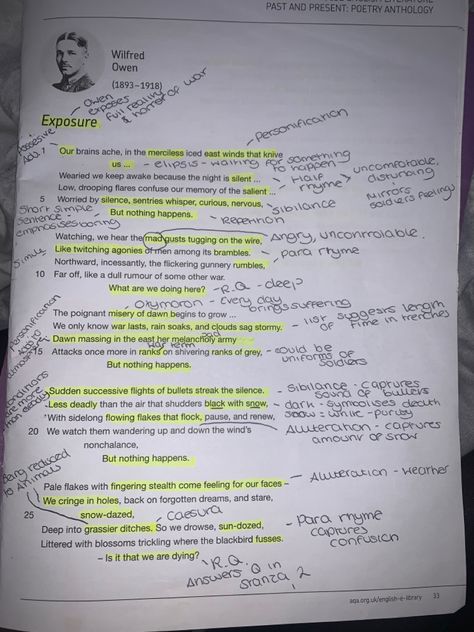 PAST AND PRESENT: POETRY ANTHOLOGY
Wilfred
Owen
(1893–1918)
Owen
exposes
full reality
& horror of war
Exposure
Personification
Our brains ache, in the merciless iced east winds that knive
us ... – elipsis – waiting for something
to happen
Wearied we keep awake because the night is silent ...
Low, drooping flares confuse our memory of the salient ...
Half
rhyme
uncomfortable,
disturbing
5 Worried by silence, sentries whisper, curious, nervous,
But nothing happens.
Sibilance
Mirrors
soldiers feelings
Short simple
sentence -
emphasises boring
Repetition
Watching, we hear the mad gusts tugging on the wire,
Angry, uncontrolable.
Like twitching agonies of men among its brambles.
Para rhyme
Simile
Northward, incessantly, the flickering gunnery rumbles,
10 Far off, like a dull rumour of some other war.
What are we doing here? – R.Q. - deep
Oxymoron - Every day
brings suffering
The poignant misery of dawn begins to grow ...
We only know war lasts, rain soaks, and clouds sag stormy.
list suggests length
of time in trenches
Dawn massing in the east her melancholy army
Personification
sad
war term
15 Attacks once more in ranks on shivering ranks of grey,
But nothing happens.
could be
uniforms of
soldiers
Sudden successive flights of bullets streak the silence.
Sibilance - captures
sound of bullets
Less deadly than the air that shudders black with snow,
dark - symbolises death
snow - white - purity
With sidelong flowing flakes that flock, pause, and renew,
Alliteration - captures
amount of snow
20 We watch them wandering up and down the wind's
nonchalance,
But nothing happens.
Being reduced
to Animals
Alliteration - weather
Pale flakes with fingering stealth come feeling for our faces –
We cringe in holes, back on forgotten dreams, and stare,
25 snow-dazed,
caesura
Deep into grassier ditches. So we drowse, sun-dozed,
Para rhyme
captures
confusion
Littered with blossoms trickling where the blackbird fusses.
– Is it that we are dying?
R.Q.
Answers Q in
stanza 2
aqa.org.uk/english-e-library 33